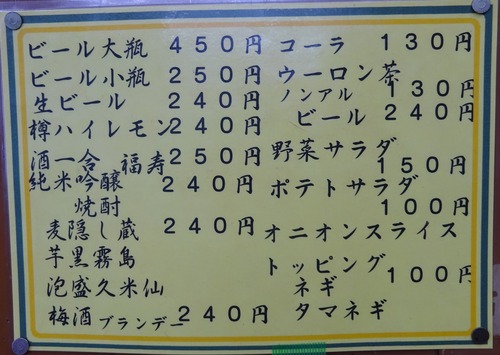 ビール大瓶 450円
ビール小瓶 250円
生ビール 240円
樽ハイレモン 240円
酒一合 福寿 250円
純米吟醸 240円
焼酎
麦隠し蔵 240円
芋黒霧島
泡盛久米仙
梅酒ブランデー 240円
コーラ 130円
ウーロン茶 130円
ノンアル
ビール 240円
野菜サラダ
150円
ポテトサラダ
100円
オニオンスライス
トッピング 100円
ネギ
タマネギ